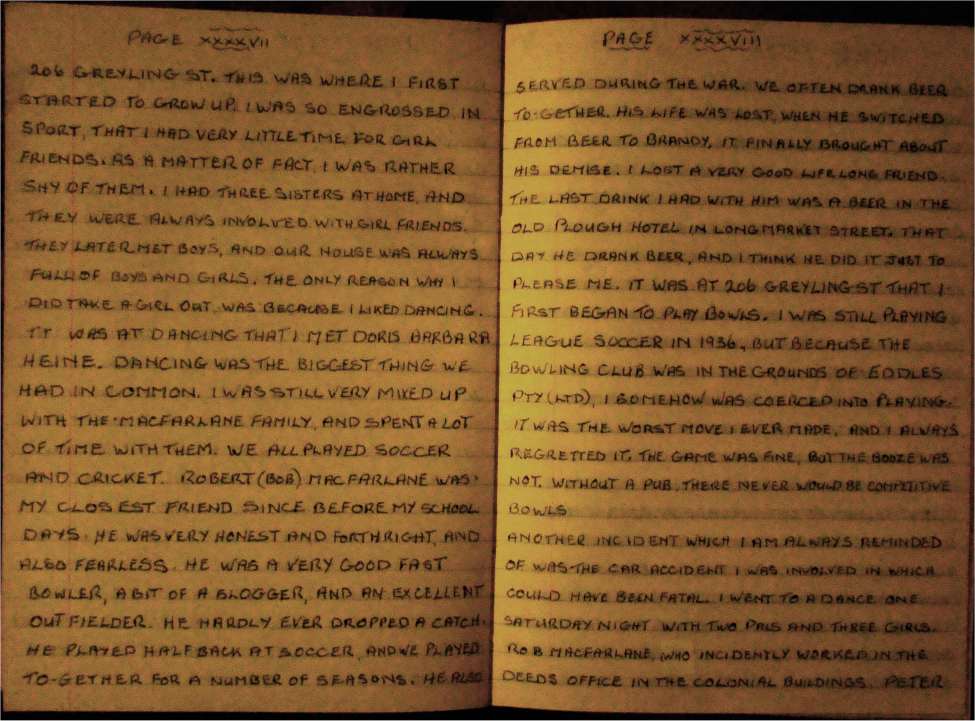 PAGE XXXXVII
206 GREYLING ST. THIS WAS WHERE I FIRST
STARTED TO GROW UP. I WAS SO ENGROSSED IN
SPORT, THAT I HAD VERY LITTLE TIME FOR GIRL
FRIENDS. AS A MATTER OF FACT, I WAS RATHER
SHY OF THEM. I HAD THREE SISTERS AT HOME, AND
THEY WERE ALWAYS INVOLVED WITH GIRL FRIENDS.
THEY LATER MET BOYS, AND OUR HOUSE WAS ALWAYS
FULL OF BOYS AND GIRLS. THE ONLY REASON WHY I
DID TAKE A GIRL OUT, WAS BECAUSE I LIKED DANCING.
IT WAS AT DANCING THAT I MET DORIS BARBARA
HEINE. DANCING WAS THE BIGGEST THING WE
HAD IN COMMON. I WAS STILL VERY MIXED UP
WITH THE MACFARLANE FAMILY, AND SPENT A LOT
OF TIME WITH THEM. WE ALL PLAYED SOCCER
AND CRICKET. ROBERT (BOB) MACFARLANE WAS
MY CLOSEST FRIEND SINCE BEFORE MY SCHOOL
DAYS. HE WAS VERY HONEST AND FORTHRIGHT, AND
ALSO FEARLESS. HE WAS A VERY GOOD FAST
BOWLER, A BIT OF A SLOGGER, AND AN EXCELLENT
OUT FIELDER. HE HARDLY EVER DROPPED A CATCH.
HE PLAYED HALF BACK AT SOCCER, AND WE PLAYED
TO-GETHER FOR A NUMBER OF SEASONS. HE ALSO
PAGE XXXXVIII
SERVED DURING THE WAR. WE OFTEN DRANK BEER
TO-GETHER. HIS LIFE WAS LOST, WHEN HE SWITCHED
FROM BEER TO BRANDY, IT FINALLY BROUGHT ABOUT
HIS DEMISE. I LOST A VERY GOOD LIFE LONG FRIEND.
THE LAST DRINK I HAD WITH HIM WAS A BEER IN THE
OLD PLOUGH HOTEL IN LONGMARKET STREET. THAT
DAY HE DRANK BEER, AND I THINK HE DID IT JUST TO
PLEASE ME. IT WAS AT 206 GREYLING ST THAT I
FIRST BEGAN TO PLAY BOWLS. I WAS STILL PLAYING
LEAGUE SOCCER IN 1936, BUT BECAUSE THE
BOWLING CLUB WAS IN THE GROUNDS OF EDDLES
PTY (LTD), I SOMEHOW WAS COERCED INTO PLAYING.
IT WAS THE WORST MOVE I EVER MADE, AND I ALWAYS
REGRETTED IT. THE GAME WAS FINE, BUT THE BOOZE WAS
NOT. WITHOUT A PUB, THERE NEVER WOULD BE COMPETITIVE
BOWLS
ANOTHER INCIDENT WHICH I AM ALWAYS REMINDED
OF WAS THE CAR ACCIDENT I WAS INVOLVED IN WHICH
COULD HAVE BEEN FATAL. I WENT TO A DANCE ONE
SATURDAY NIGHT WITH TWO PALS AND THREE GIRLS.
ROB MACFARLANE, WHO INCIDENTLY WORKED IN THE
DEEDS OFFICE IN THE COLONIAL BUILDINGS. PETER